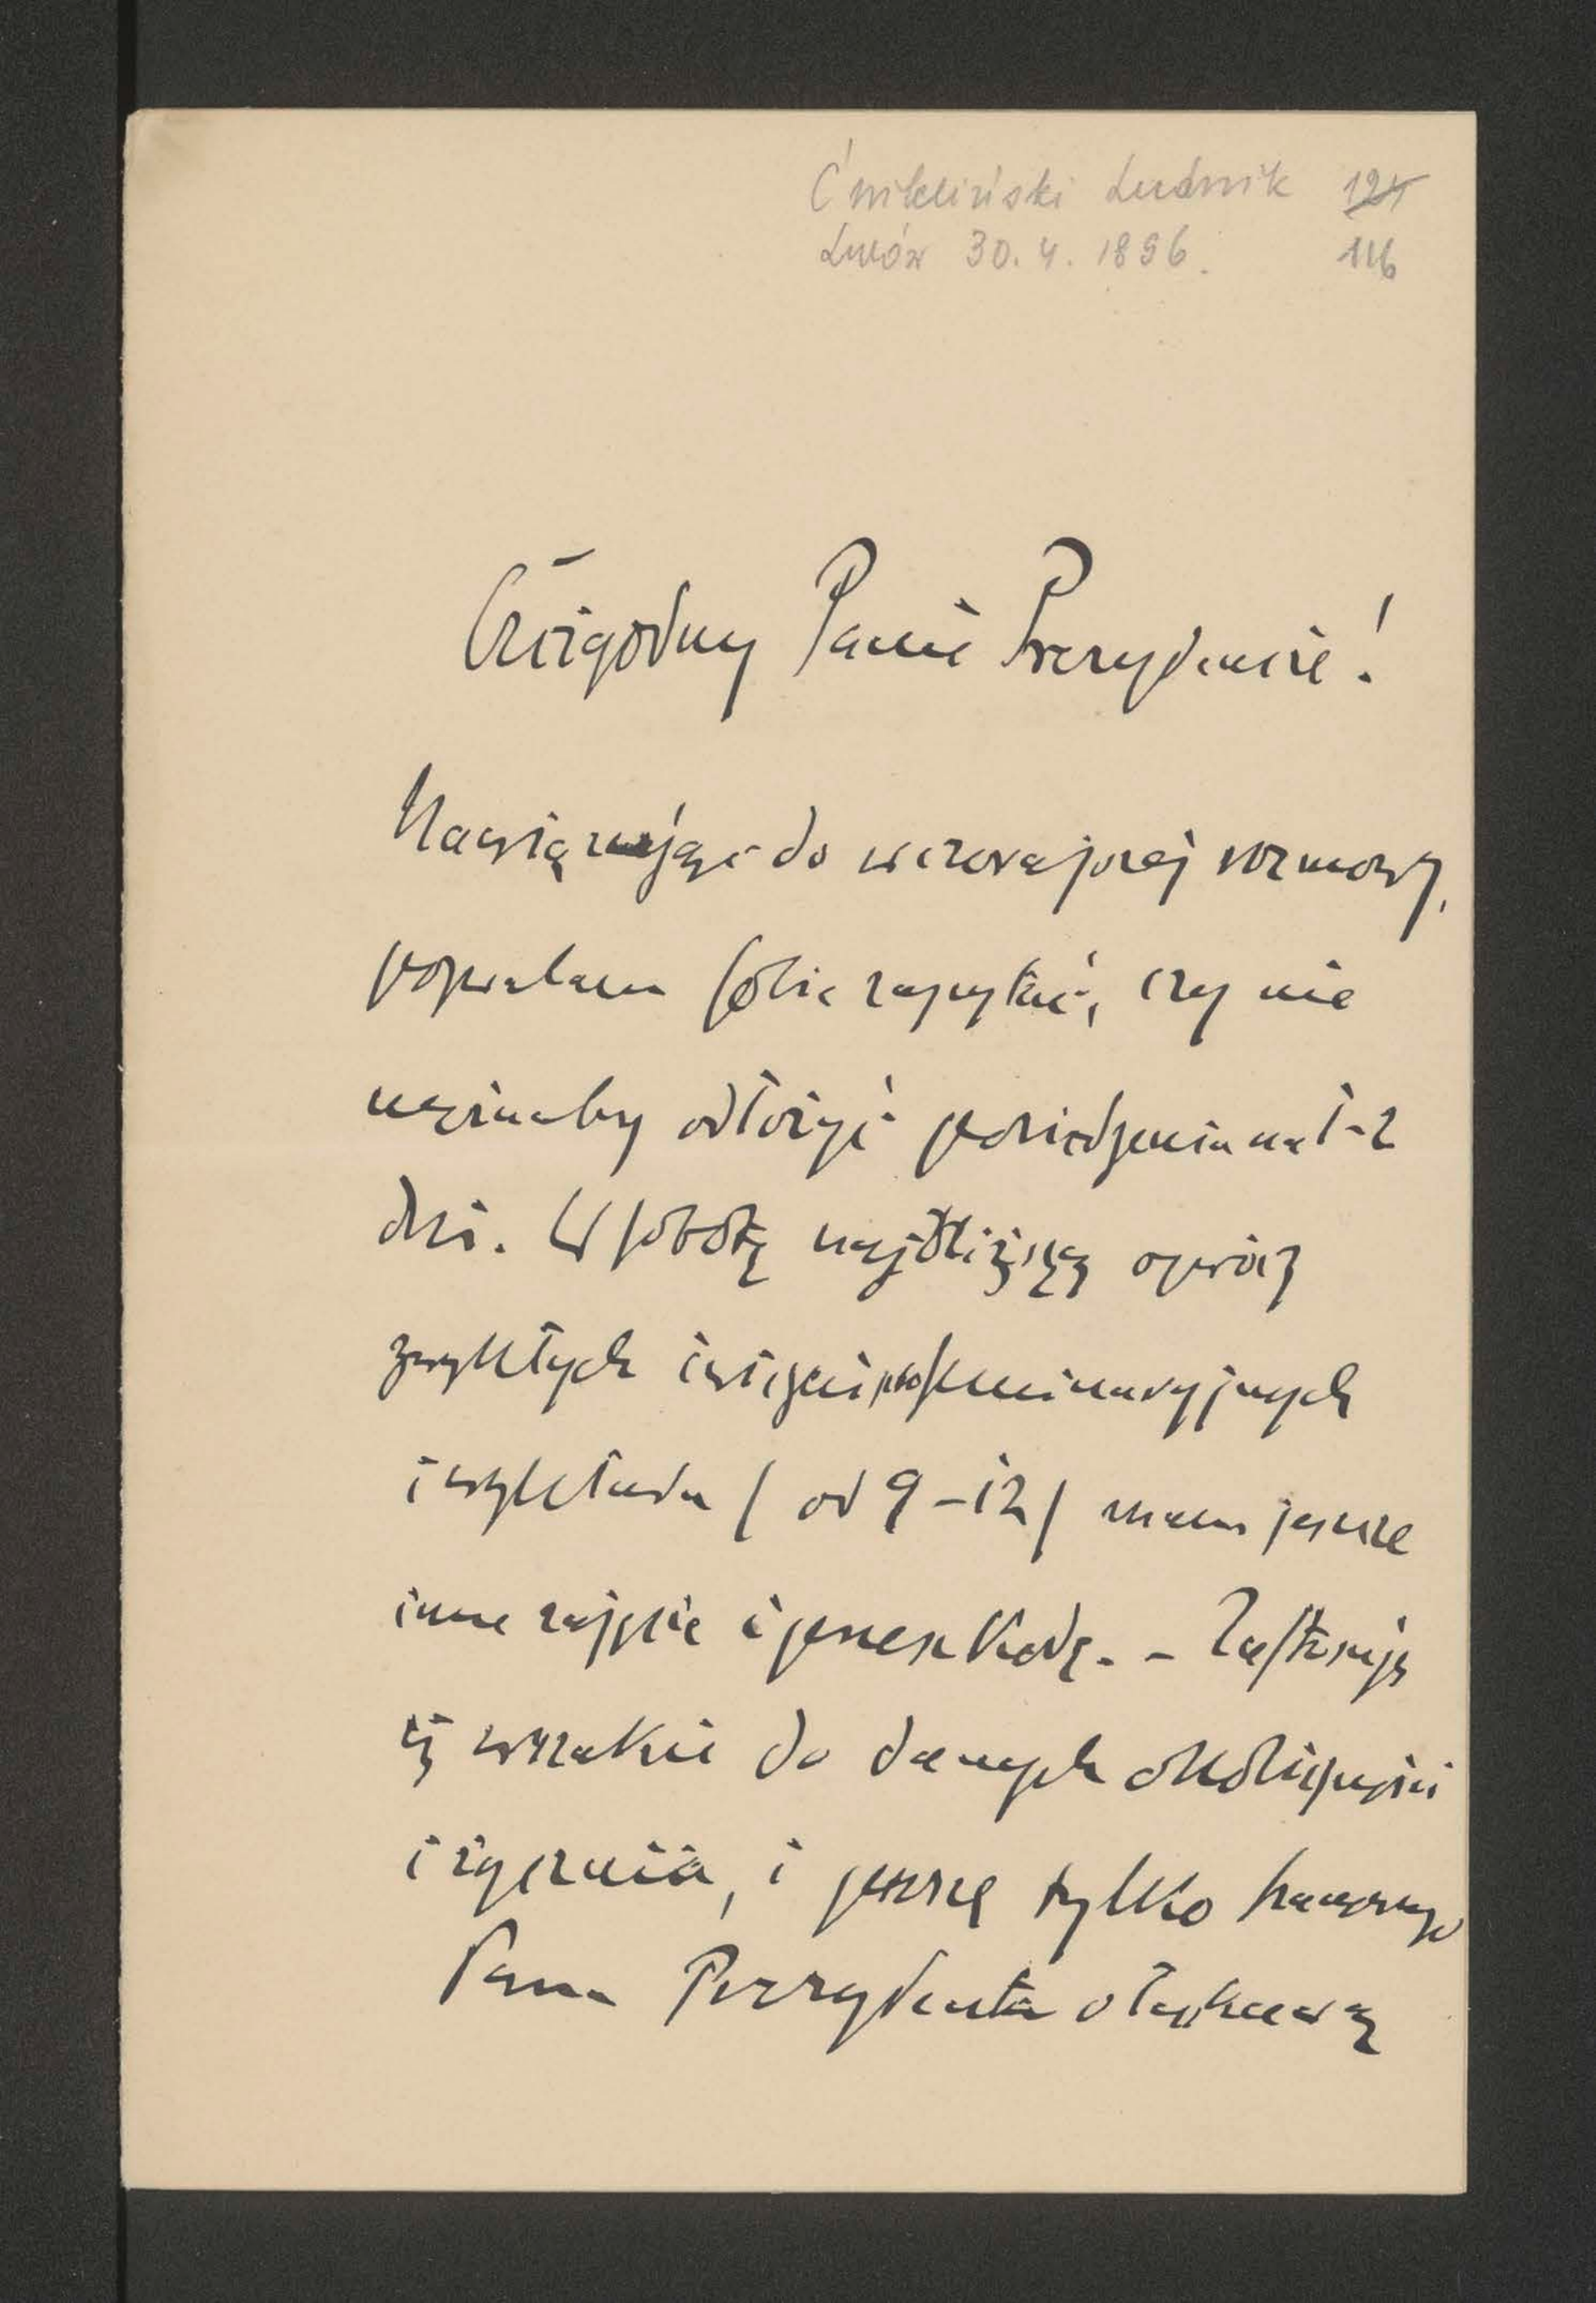 Ćwikliński Ludwik 124
Lwów 30. 4. 1896. 116
Czcigodny Panie Prezydencie!
Nawiązując do wczorajszej rozmowy,
pozwalam sobie zapytać, czy nie
możnaby odłożyć posiedzenia na 1-2
dni. W sobotę najbliższą oprócz
zwykłych ćwiczeń proseminaryjnych
i wykładu / od 9-12 / mam jeszcze
inne zajęcie i przeszkodę. - Zastosuję
się wszakże do danych okoliczności
i życzenia, i proszę tylko
Pana Prezydenta o łaskawą